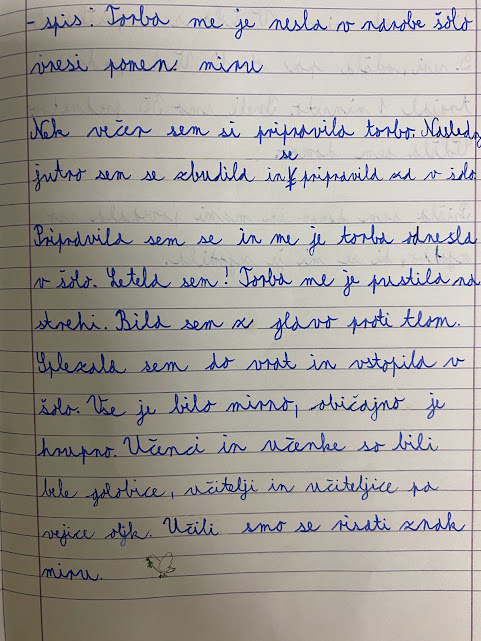 - spis: Torba me je nesla v narobe šolo
vresi pomen. miru
Nek večer sem si pripravila torbo. Naslednj
se
jutro sem se zbudila in pripravila za v šolo.
Pripravila sem se in me je torba odnesla
v šolo. Letela sem! Torba me je pustila na
strehi. Bila sem z glavo proti tlom.
Splezala sem do vrat in vstopila v
šolo. Vse je bilo mirno, običajno je
hrupno. Učenci in učenke so bili
bele golobice, učitelji in učiteljice pa
vejice oljk. Učili smo se risati znak
miru.